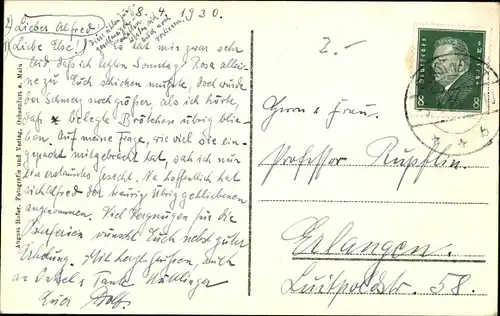 8. 4. 1930.
2) Lieber Alfred!
1) Liebe Else!
Es tat mir zwar sehr
leid, daß ich letzten Sonntag Rose allei-
ne zu Euch schicken mußte, doch wurde
der Schmerz noch größer, als ich hörte,
daß * belegte Brötchen übrig blie-
ben. Auf meine Frage, wie viel sie ein-
gepackt mitgebracht hat, sah ich nur
ein erstauntes Gesicht. Na hoffentlich hat
sich Alfred der traurig Übriggebliebenen
angenommen. Viel Vergnügen für die
Osterferien wünscht Euch nebst guter
Erholung. Mit herzl. Grüßen, auch
an Onkel & Tante
Euer
2.-
Herrn & Frau
Professor
Erlangen.
Luitpoldstr. 58.
August Hofer, Fotografie und Verlag, Ochsenfurt a. Main
Deutsches Reich
8 8